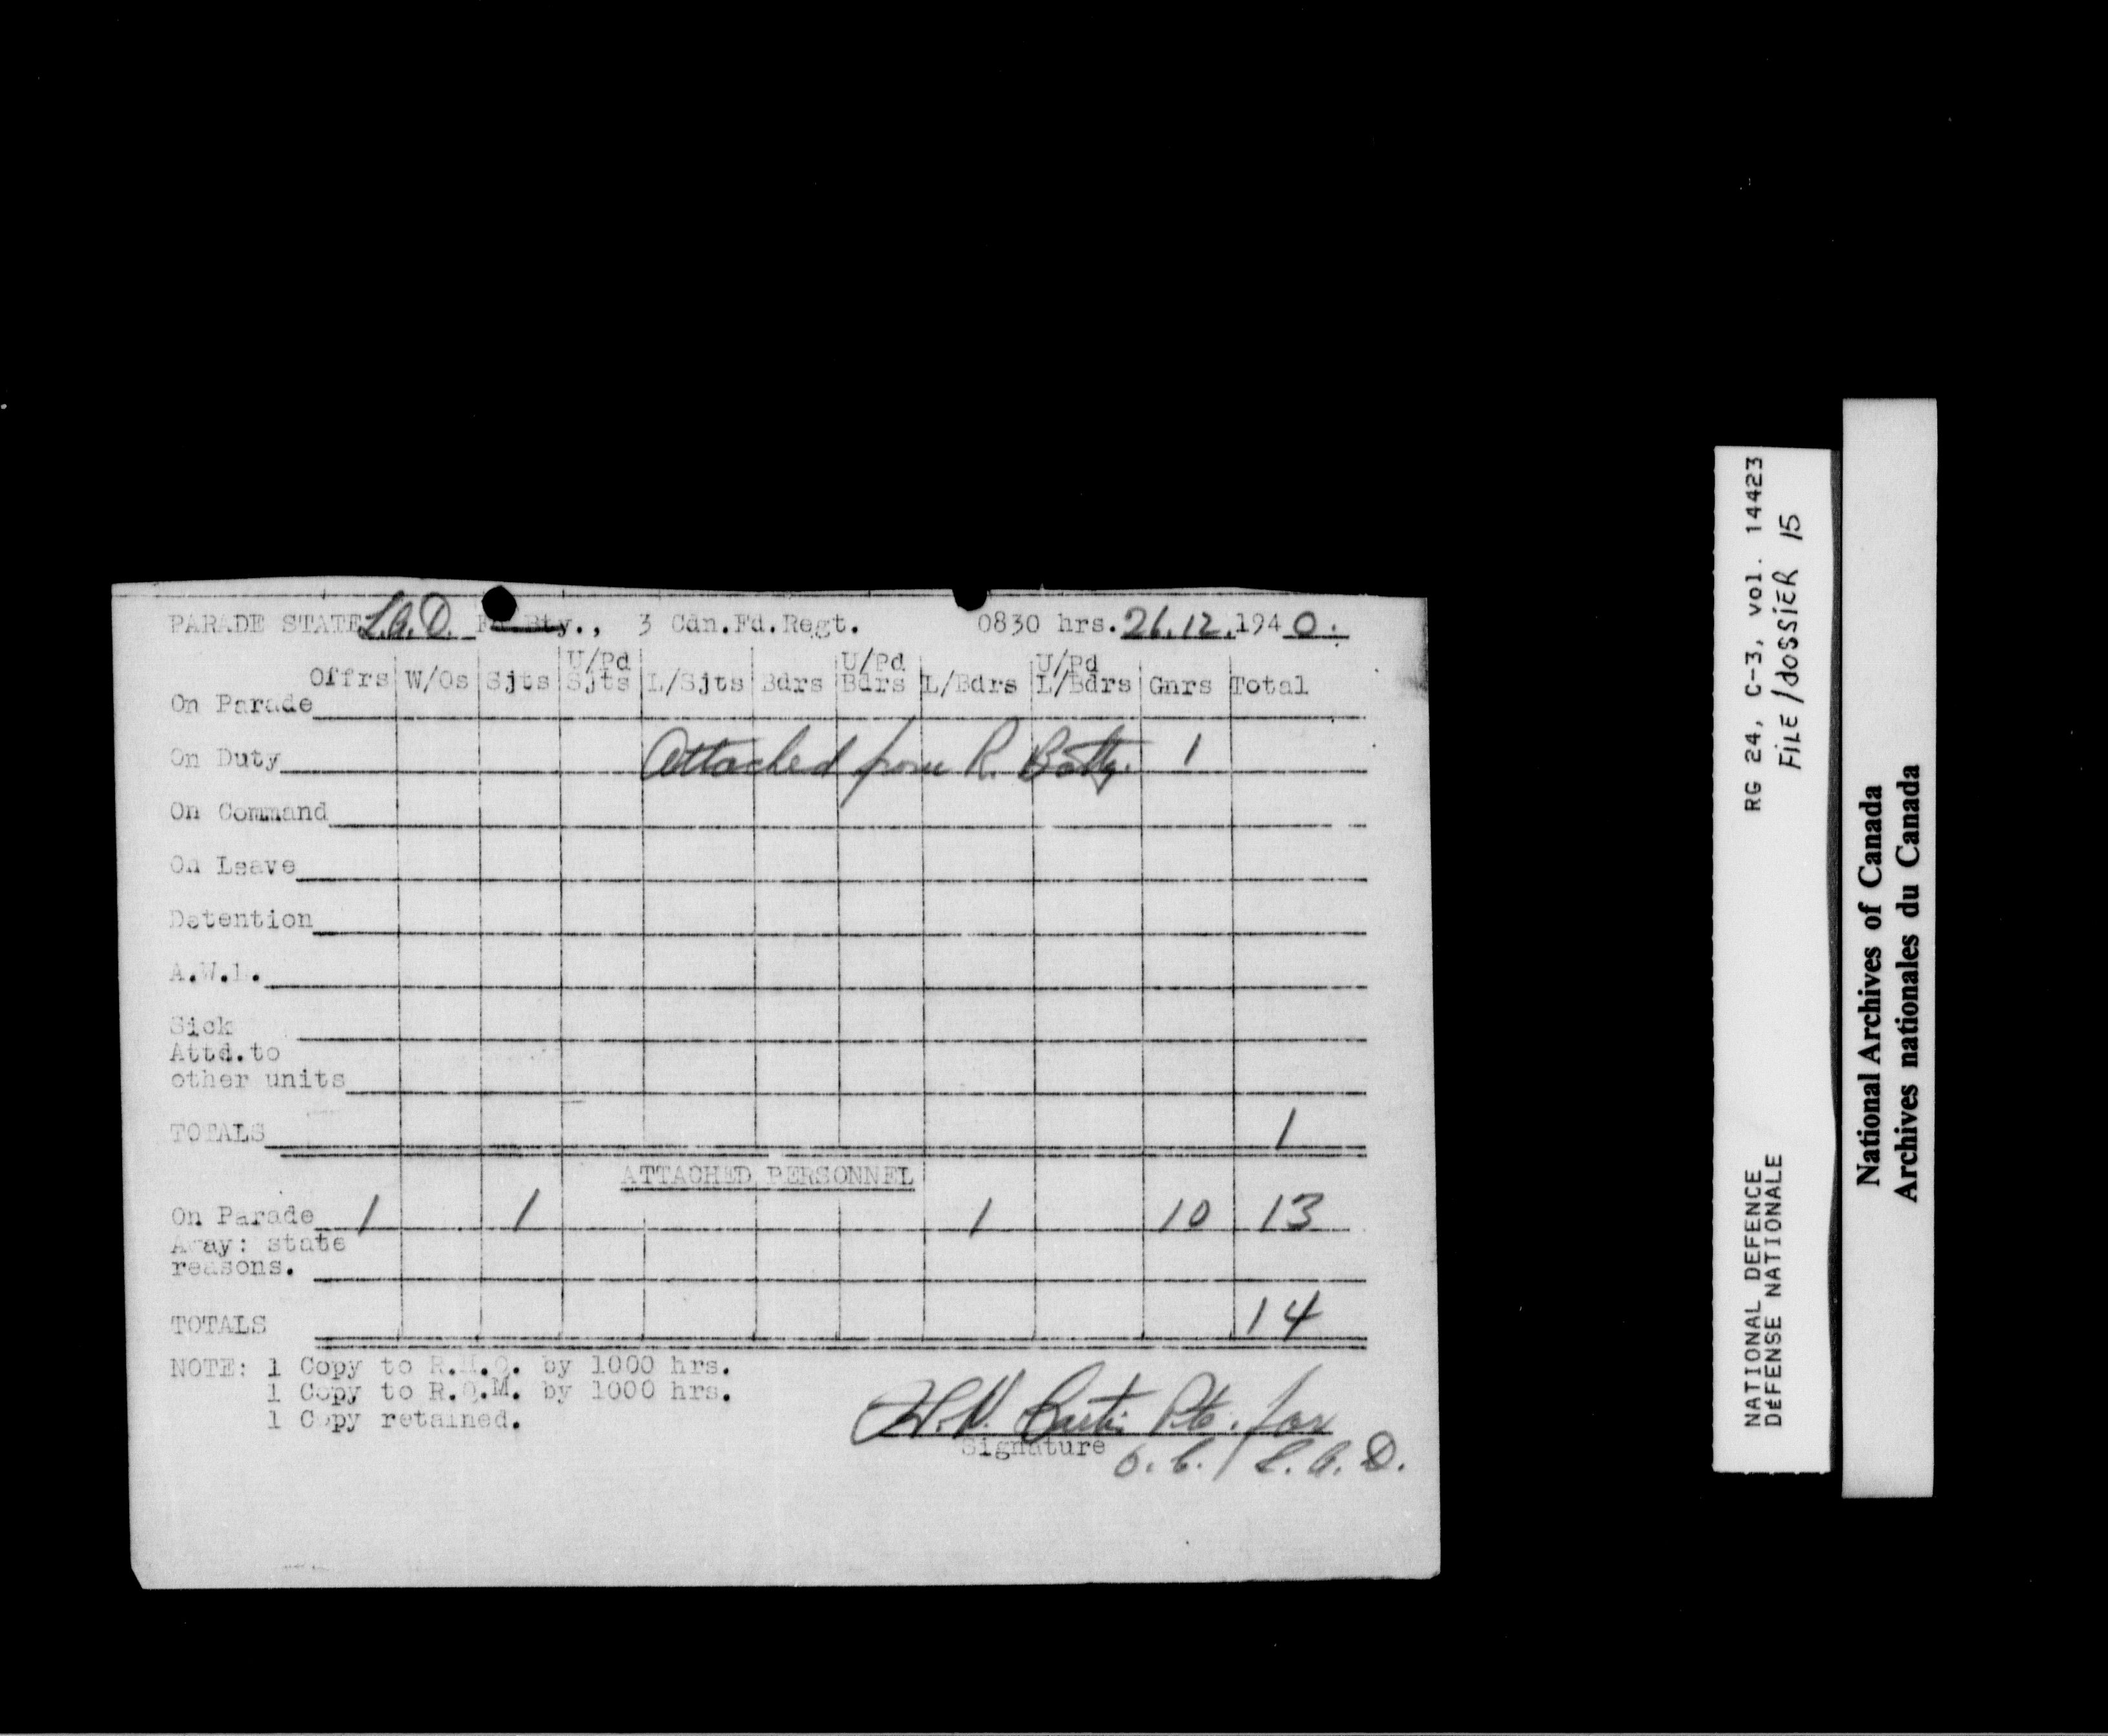 PARADE STATE L.A.D. Fd. Bty., 3 Cdn.Fd.Regt. 0830 hrs. 26.12.1940.
Offrs W/Os Sjts U/Pd Sjts L/Sjts Bdrs U/Pd Bdrs L/Bdrs U/Pd L/Bdrs Gnrs Total
On Parade
On Duty Attached from R. Batty. 1
On Command
On Leave
Detention
A.W.L.
Sick
Attd.to
other units
TOTALS 1
ATTACHED PERSONNEL
On Parade 1 1 1 10 13
Away: state
reasons.
TOTALS 14
NOTE: 1 Copy to R.H.Q. by 1000 hrs.
1 Copy to R.Q.M. by 1000 hrs.
1 Copy retained.
Pte. for
Signature
O.C. / L.A.D.
RG 24, C-3, vol. 14423
FILE/dOSSiER 15
NATIONAL DEFENCE
DÉFENSE NATIONALE
National Archives of Canada
Archives nationales du Canada